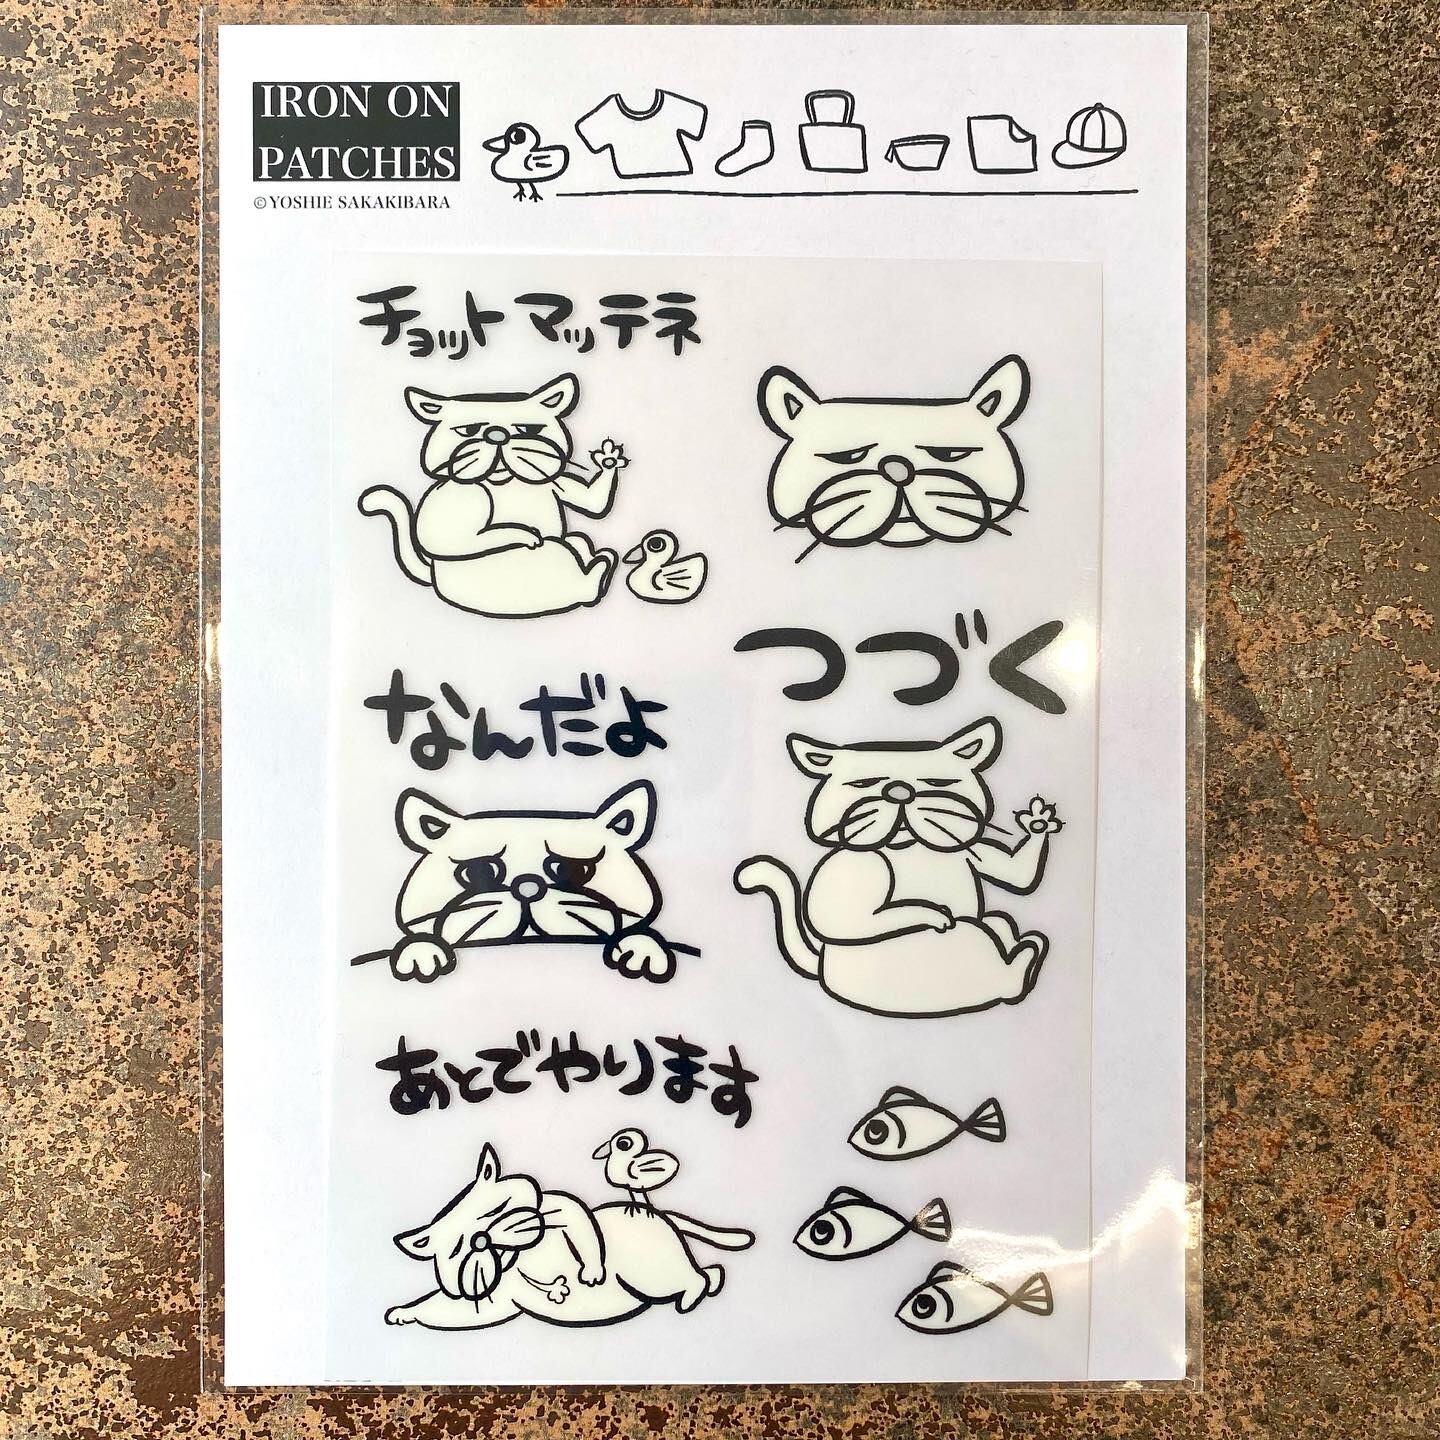 IRON ON
PATCHES
©YOSHIE SAKAKIBARA
チョットマッテネ
つづく
なんだよ
あとでやります